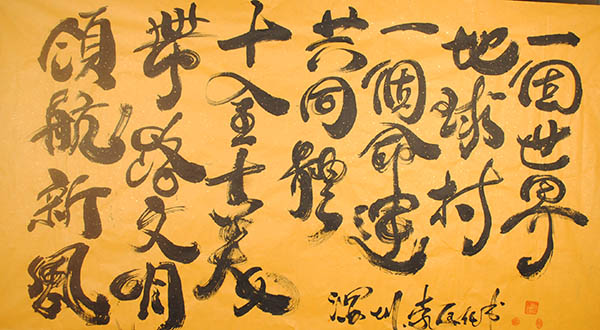 一個世界
地球村
一個命運
共同體
十全十美
帶路文明
領航新風
深圳李書